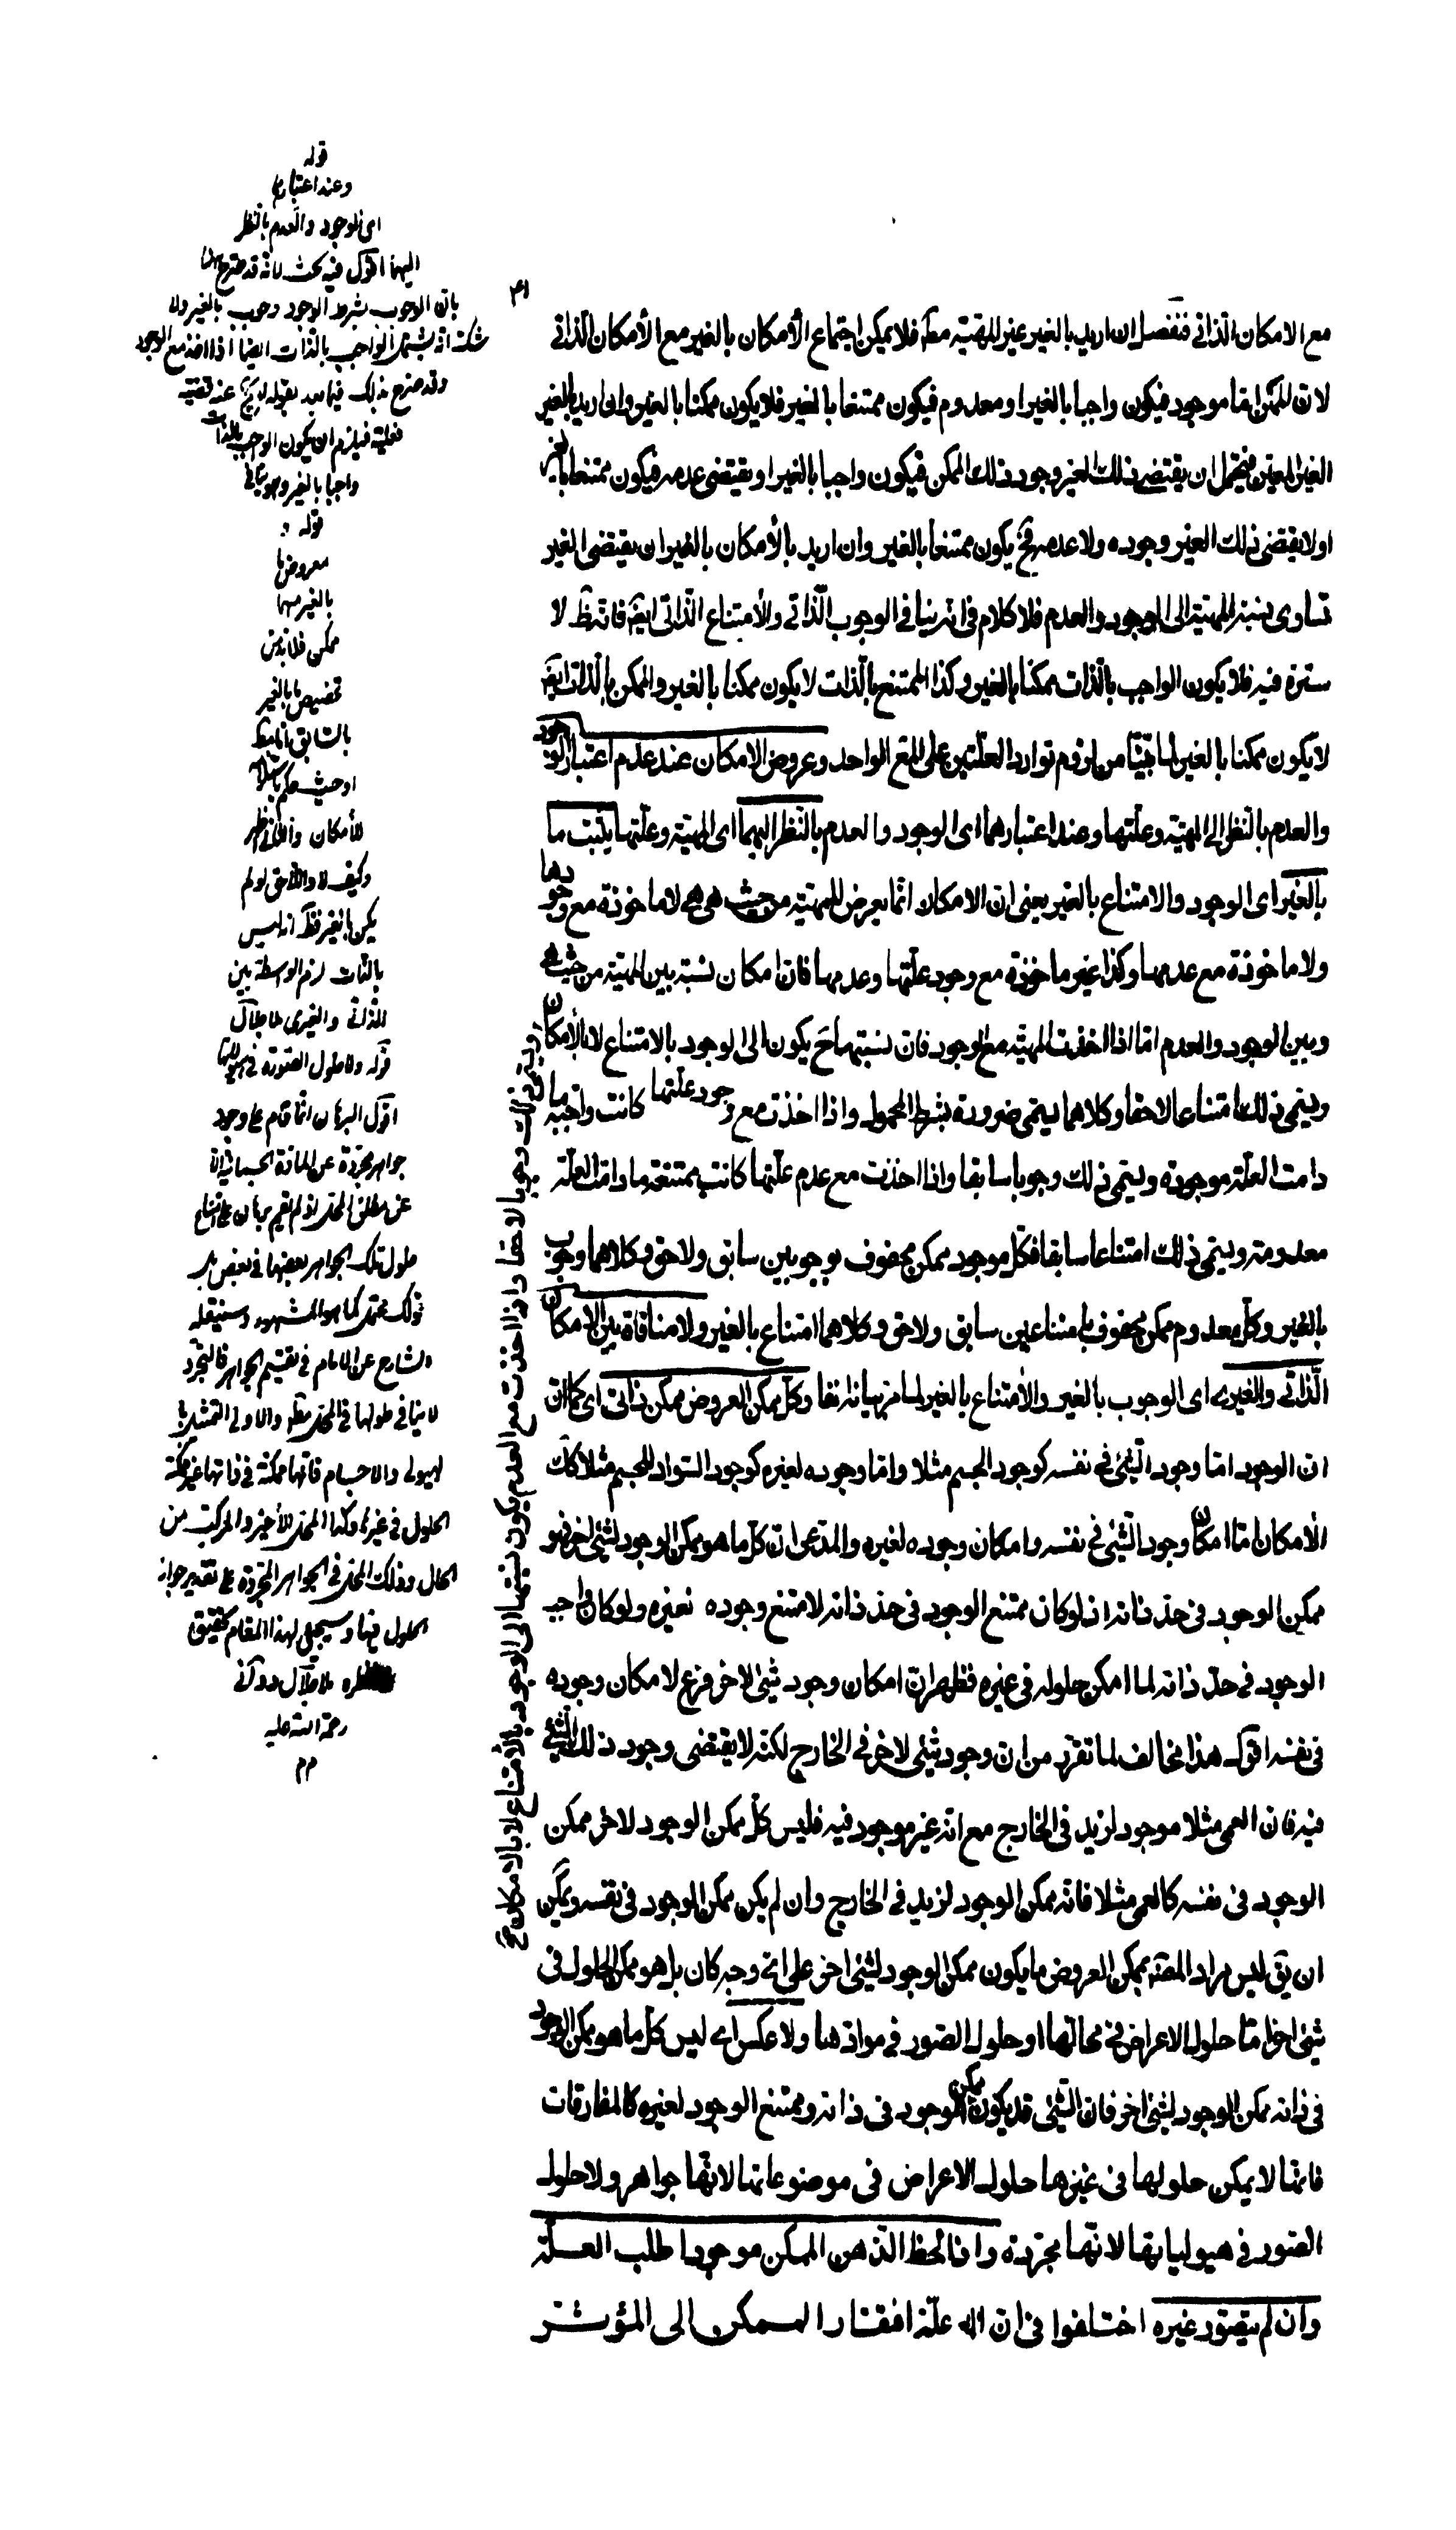 ٤١
مع الامكان الذاتى فنفصل ان اريد بالغير غير المهيّة مط فلا يمكن اجتماع الأمكان بالغير مع الأمكان الذاتى
لان الممكن امّا موجود فيكون واجبا بالغير او معدوم فيكون ممتنعا بالغير فلا يكون ممكنا بالغير وان اريد بالغير
الغير المعين فيحتمل ان يقتضى ذلك الغير وجود ذلك الممكن فيكون واجبا بالغير او يقتضى عدمه فيكون ممتنعا بالغير
اولا يقتضى ذلك الغير وجوده ولا عدمه فح يكون ممتنعا بالغير وان اريد بالأمكان بالغير ان يقتضى الغير
تساوى نسبة المهيّة الى الوجود والعدم فلا كلام فى انه ينافى الوجوب الذاتى والأمتناع الذاتى ايضا فانه لا
سترة فيه فلا يكون الواجب بالذات ممكنا بالغير وكذا الممتنع بالذات لا يكون ممكنا بالغير والممكن بالذات ايضا
لا يكون ممكنا بالغير لما بيّنا من لزوم توارد العلّتين على المع الواحد وعروض الامكان عند عدم اعتبار الوجود
والعدم بالنظر الى المهيّة وعلّتها وعند اعتبارهما اى الوجود والعدم بالنظر اليهما اى المهيّة وعلّتها يثبت ما
بالغير اى الوجوب والامتناع بالغير يعنى ان الامكان انّما يعرض للمهيّة من حيث هى هى لا ماخوذة مع وجودها
ولا ماخوذة مع عدمها وكذا غير ماخوذة مع وجود علّتها وعدمها فان الامكان نسبة بين المهيّة من حيث هى
وبين الوجود والعدم امّا اذا اخذت المهيّة مع الوجود فان نسبتها ح يكون الى الوجود بالامتناع لا بالأمكان
ويسمى ذلك امتناعا لاحقا وكلاهما يسمى ضرورة بشرط المحمول واذا اخذت مع وجود علتها كانت واجبة ما
دامت العلّة موجودة ويسمى ذلك وجوبا سابقا واذا اخذت مع عدم علّتها كانت ممتنعة ما دامت العلّة
معدومة ويسمى ذلك امتناعا سابقا فكل موجود ممكن محفوف بوجوبين سابق ولاحق وكلاهما وجوب
بالغير وكلّ معدوم ممكن محفوف بامتناعين سابق ولاحق وكلاهما امتناع بالغير ولا منافاة بين الامكان
الذاتى والغيرى اى الوجوب بالغير والأمتناع بالغير لما مر بيانه انفا وكلّ ممكن العروض ممكن ذاتى اى كما ان
ان الوجود امّا وجود الشئ فى نفسه كوجود الجسم مثلا وامّا وجوده لغيره كوجود السّواد للجسم مثلا كك
الأمكان امّا امكان وجود الشئ فى نفسه وامكان وجوده لغيره والمدعى ان كلّ ما هو ممكن الوجود لشئ اخر فهو
ممكن الوجود فى حدّ ذاته اذ لو كان ممتنع الوجود فى حدّ ذاته لامتنع وجوده لغيره ولو كان واجب
الوجود فى حدّ ذاته لما امكن حلوله فى غيره فظهر ان امكان وجود شئ لاخر فرع لامكان وجوده
فى نفسه اقول هذا مخالف لما تقرّر من ان وجود شئ لاخر فى الخارج لكنّه لا يقتضى وجود ذلك الشئ
فيه فان العمى مثلا موجود لزيد فى الخارج مع انّه غير موجود فيه فليس كلّ ممكن الوجود لاخر ممكن
الوجود فى نفسه كالعمى مثلا فانّه ممكن الوجود لزيد فى الخارج وان لم يكن ممكن الوجود فى نفسه ويمكن
ان يق ليس مراد المصنّف بممكن العروض ما يكون ممكن الوجود لشئ اخر على اىّ وجه كان بل هو ممكن الحلول فى
شئ اخر امّا حلول الاعراض فى محالّها او حلول الصّور فى موادّها ولا عكس اى ليس كلّ ما هو ممكن الوجود
فى ذاته ممكن الوجود لشئ اخر فان الشئ قد يكون ممكن الوجود فى ذاته وممتنع الوجود لغيره كالمفارقات
فانّها لا يمكن حلولها فى غيرها حلول الاعراض فى موضوعاتها لانّها جواهر ولا حلول
الصّور فى هيولياتها لانّها مجرّدة واذا لحظ الذهن الممكن موجودا طلب العلّة
وان لم يتصوّر غيره اختلفوا فى ان علّة افتقار الممكن الى المؤثر
ويسمى ذلك وجوبا لاحقا واذا اخذت مع العدم يكون نسبتها الى الوجود بالأمتناع لا بالامكان ح
قوله
وعند اعتبارهما
اى الوجود والعدم بالنظر
اليهما اقول فيه بحث لانّه قد صرّح
بان الوجوب بشرط الوجود وجوب بالغير ولا
شك انه يشمل الواجب بالذات ايضا اذا اخذ مع الوجود
وقد صرّح بذلك فيما بعد بقوله
فعلية فيلزم ان يكون الواجب بالذات
واجبا بالغير وهو ينافى
قوله و
معروض ما
بالغير منهما
ممكن فلا بد من
تخصيص ما بالغير
بالسابق
وكيف لا واللاحق لو لم
يكن بالغير
بالذات لزم الواسطة بين
الذاتى والغيرى
قوله ولا حلول الصّورة فى هيولاها
اقول البرهان انّما قام على وجود
جواهر مجرّدة عن المادّة الجسمانية لا
عن مطلق المحل اذ لم يقم برهان على امتناع
حلول تلك الجواهر بعضها فى بعض بل
ذلك محتمل كما هو المشهور وسينقله
الشارح عن الامام فى تقسيم الجواهر فالتجرّد
لا ينافى حلولها فى المحل مط والاولى التمثيل
بالهيولى والاجسام فانّها ممكنة فى ذاتها غير ممكنة
الحلول فى غيرها وكذا المحل الأخير والمركّب من
الحال وذلك المحل فى الجواهر المجرّدة على تقدير جواز
الحلول فيها وسيجئ لهذا المقام تحقيق
ملا جلال دوانى
رحمة الله عليه